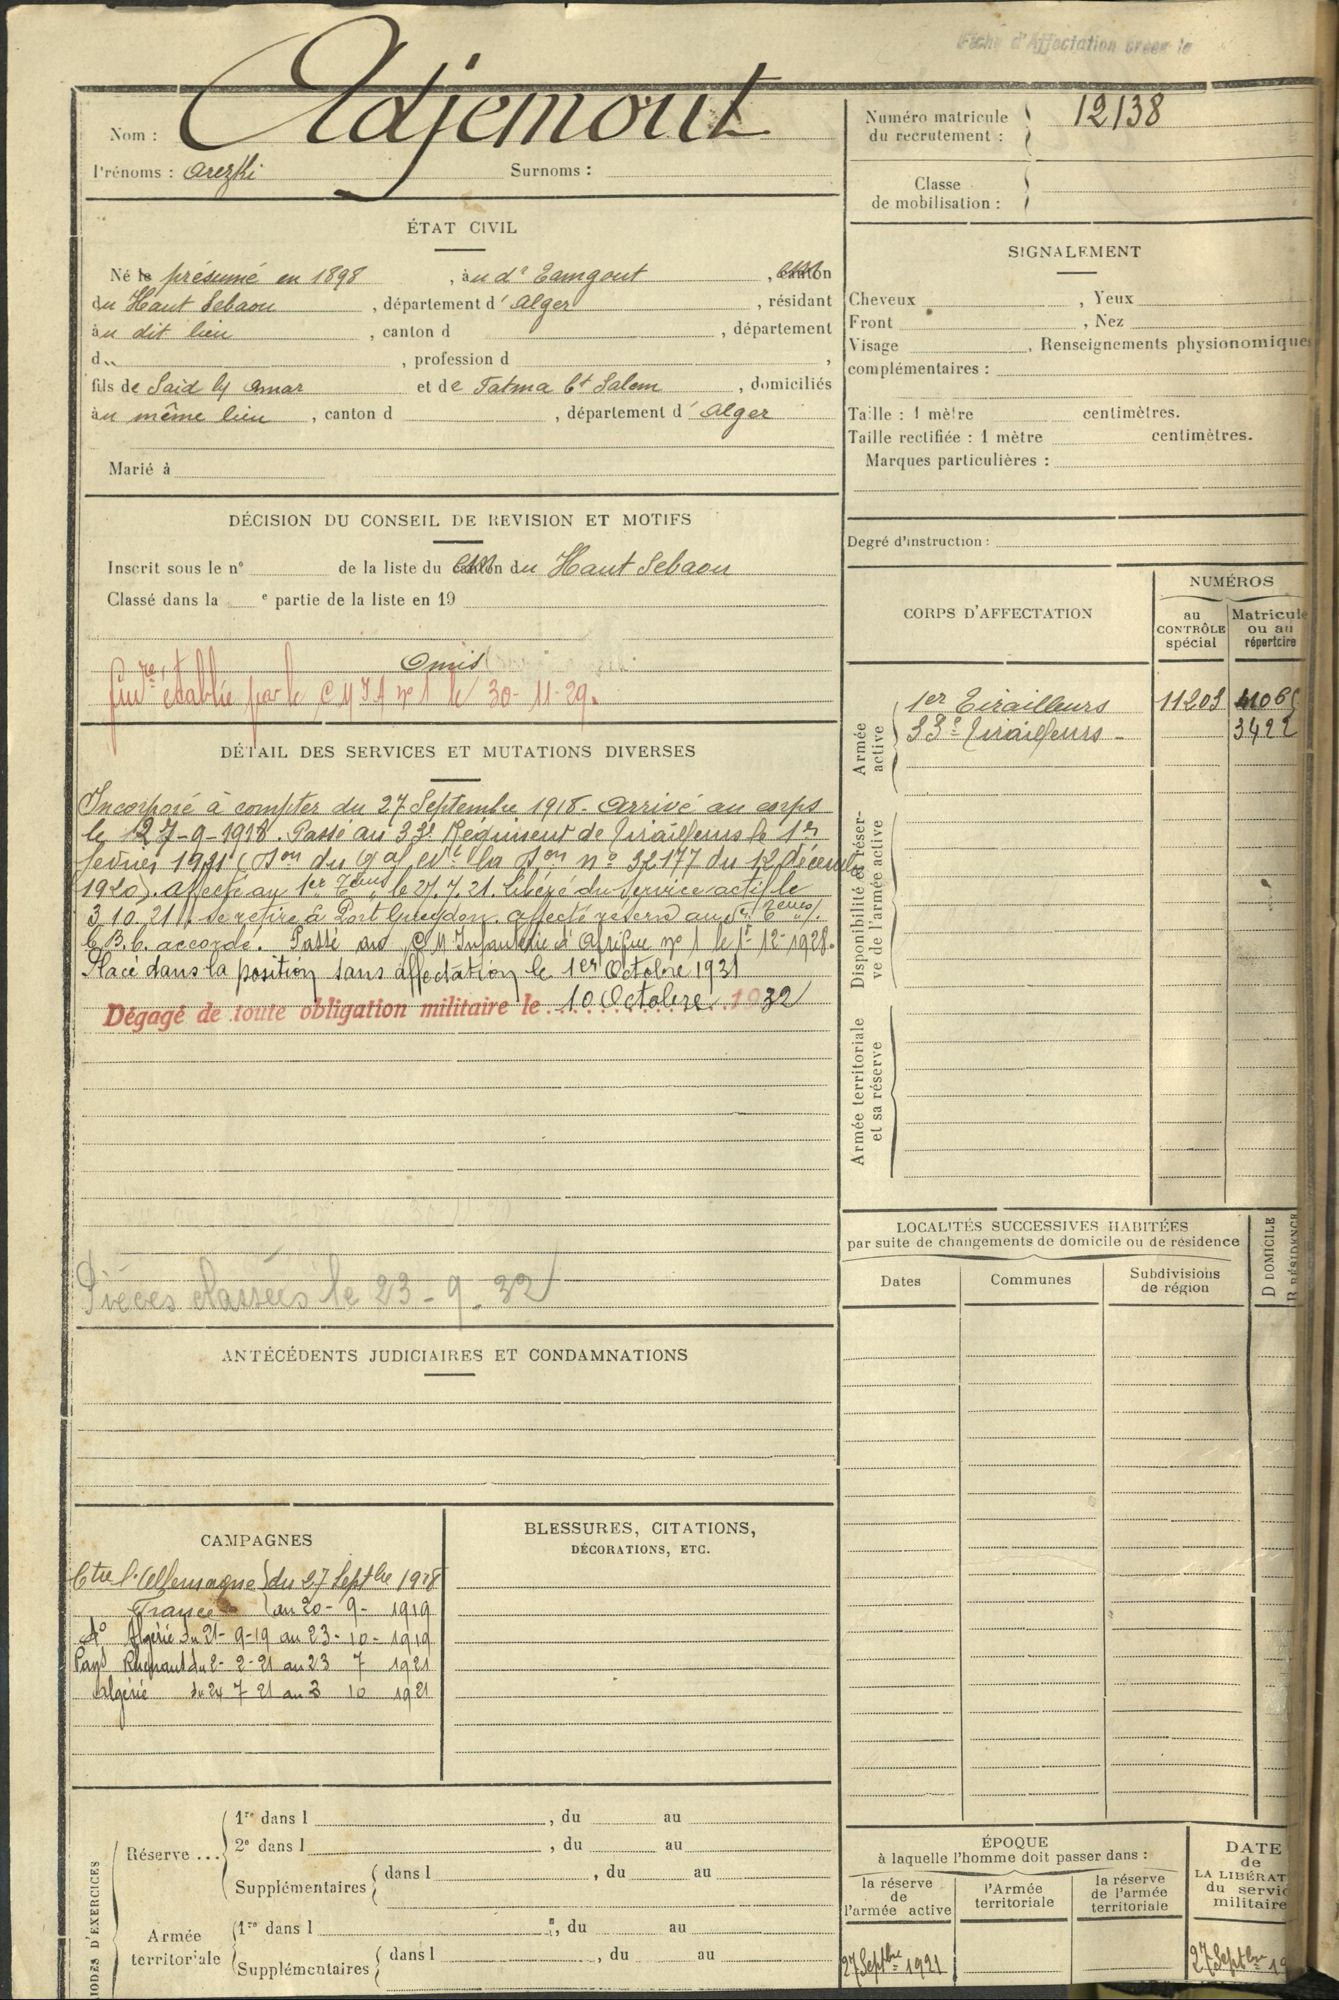 Fiche d'Affectation créée le
Nom : Adjemout
Prénoms : Arezki Surnoms :
ÉTAT CIVIL
Né le présumé en 1898 , au dr Tamgout , canton
du Haut Sebaou , département d' Alger , résidant
au dit lieu , canton d , département
d , profession d ,
fils de Said ly Amar et de Fatma bt Salem , domiciliés
au même lieu , canton d , département d' Alger
Marié à
DÉCISION DU CONSEIL DE REVISION ET MOTIFS
Inscrit sous le n° de la liste du canton du Haut Sebaou
Classé dans la e partie de la liste en 19
Omis
établie par le C M I A n° 1 le 30-11-29.
DÉTAIL DES SERVICES ET MUTATIONS DIVERSES
Incorporé à compter du 27 Septembre 1918. Arrivé au corps
le 27-9-1918. Passé au 33e Régiment de Tirailleurs le 1er
février 1921 (Don du Gal n° 32177 du 12 décembre
1920). Affecté au 1er le 27.7.21. Libéré du service actif le
3.10.21. Se retire à Port Gueydon. affecté réserve au
C.B.C. accordé. Passé au C M Infanterie d'Afrique n° 1 le 1er-12-1928.
Placé dans la position sans affectation le 1er Octobre 1931
Dégagé de toute obligation militaire le 10 Octobre 1932
Pièces classées le 23-9-32
ANTÉCÉDENTS JUDICIAIRES ET CONDAMNATIONS
CAMPAGNES
Ctre l'Allemagne du 27 Septbre 1918
France au 20-9-1919
do Algérie du 21-9-19 au 23-10-1919
Pays Rhénans du 2-2-21 au 23 7 1921
Algérie du 24 7 21 au 3 10 1921
BLESSURES, CITATIONS,
DÉCORATIONS, ETC.
Réserve ...
1re dans l , du au
2e dans l , du au
Supplémentaires dans l , du au
Armée
territoriale
1re dans l , du au
Supplémentaires dans l , du au
IODES D'EXERCICES
Numéro matricule
du recrutement : 12138
Classe
de mobilisation :
SIGNALEMENT
Cheveux , Yeux
Front , Nez
Visage , Renseignements physionomiques
complémentaires :
Taille : 1 mètre centimètres.
Taille rectifiée : 1 mètre centimètres.
Marques particulières :
Degré d'instruction :
CORPS D'AFFECTATION
NUMÉROS
au
CONTRÔLE
spécial
Matricule
ou au
répertoire
Armée
active
1er Tirailleurs 11203
33e Tirailleurs - 3422
Disponibilité et réser-
ve de l'armée active
Armée territoriale
et sa réserve
LOCALITÉS SUCCESSIVES HABITÉES
par suite de changements de domicile ou de résidence
Dates Communes Subdivisions
de région
D DOMICILE
R RÉSIDENCE
ÉPOQUE
à laquelle l'homme doit passer dans :
la réserve
de
l'armée active
l'Armée
territoriale
la réserve
de l'armée
territoriale
DATE
de
LA LIBÉRAT
du servic
militaire
27 Septbre 1921
27 Septbre 19